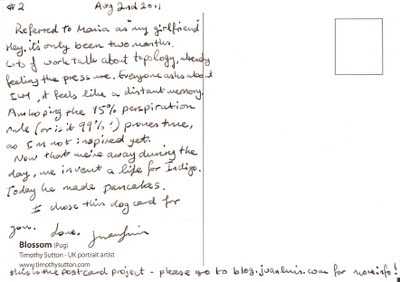 #2 Aug 2nd 2011
Referred to Maria as "my girlfriend"
Hey. it's only been two months.
Lots of work talk about topology, already
feeling the pressure. Everyone asks about
, it feels like a distant memory.
Am hoping the 95% perspiration
rule (or is it 99%?) proves true,
as I'm not inspired yet.
Now that we're away during the
day, we invent a life for Indigo.
Today he made pancakes.
I chose this dog card for
you. Love, juanluis
Blossom (Pug)
Timothy Sutton - UK portrait artist
www.timothysutton.com
this is the postcard project - please go to blog.juanluis.com for more info!